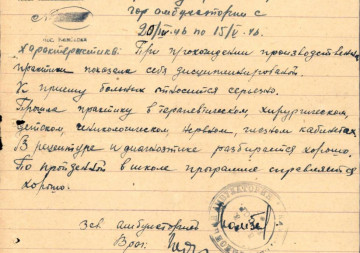 гор амбулатории с
20/IV-46 по 15/V-46.
Характеристика: При прохождении производственной
практики показала себя дисциплинированной.
К приему больных относится серьезно.
Прошла практику в терапевтическом, хирургическом,
детском, гинекологическом, нервном, глазном кабинетах
В рецептуре и диагностике разбирается хорошо.
По пройденной в школе программе справляется
хорошо.
Зав. амбулаторией
Врач: